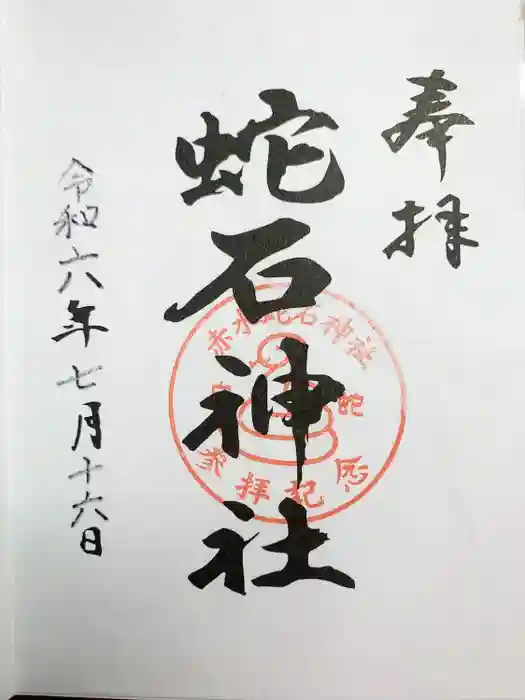 奉拝
蛇石神社
令和六年七月十六日
赤水蛇石神社
参拝記念
蛇